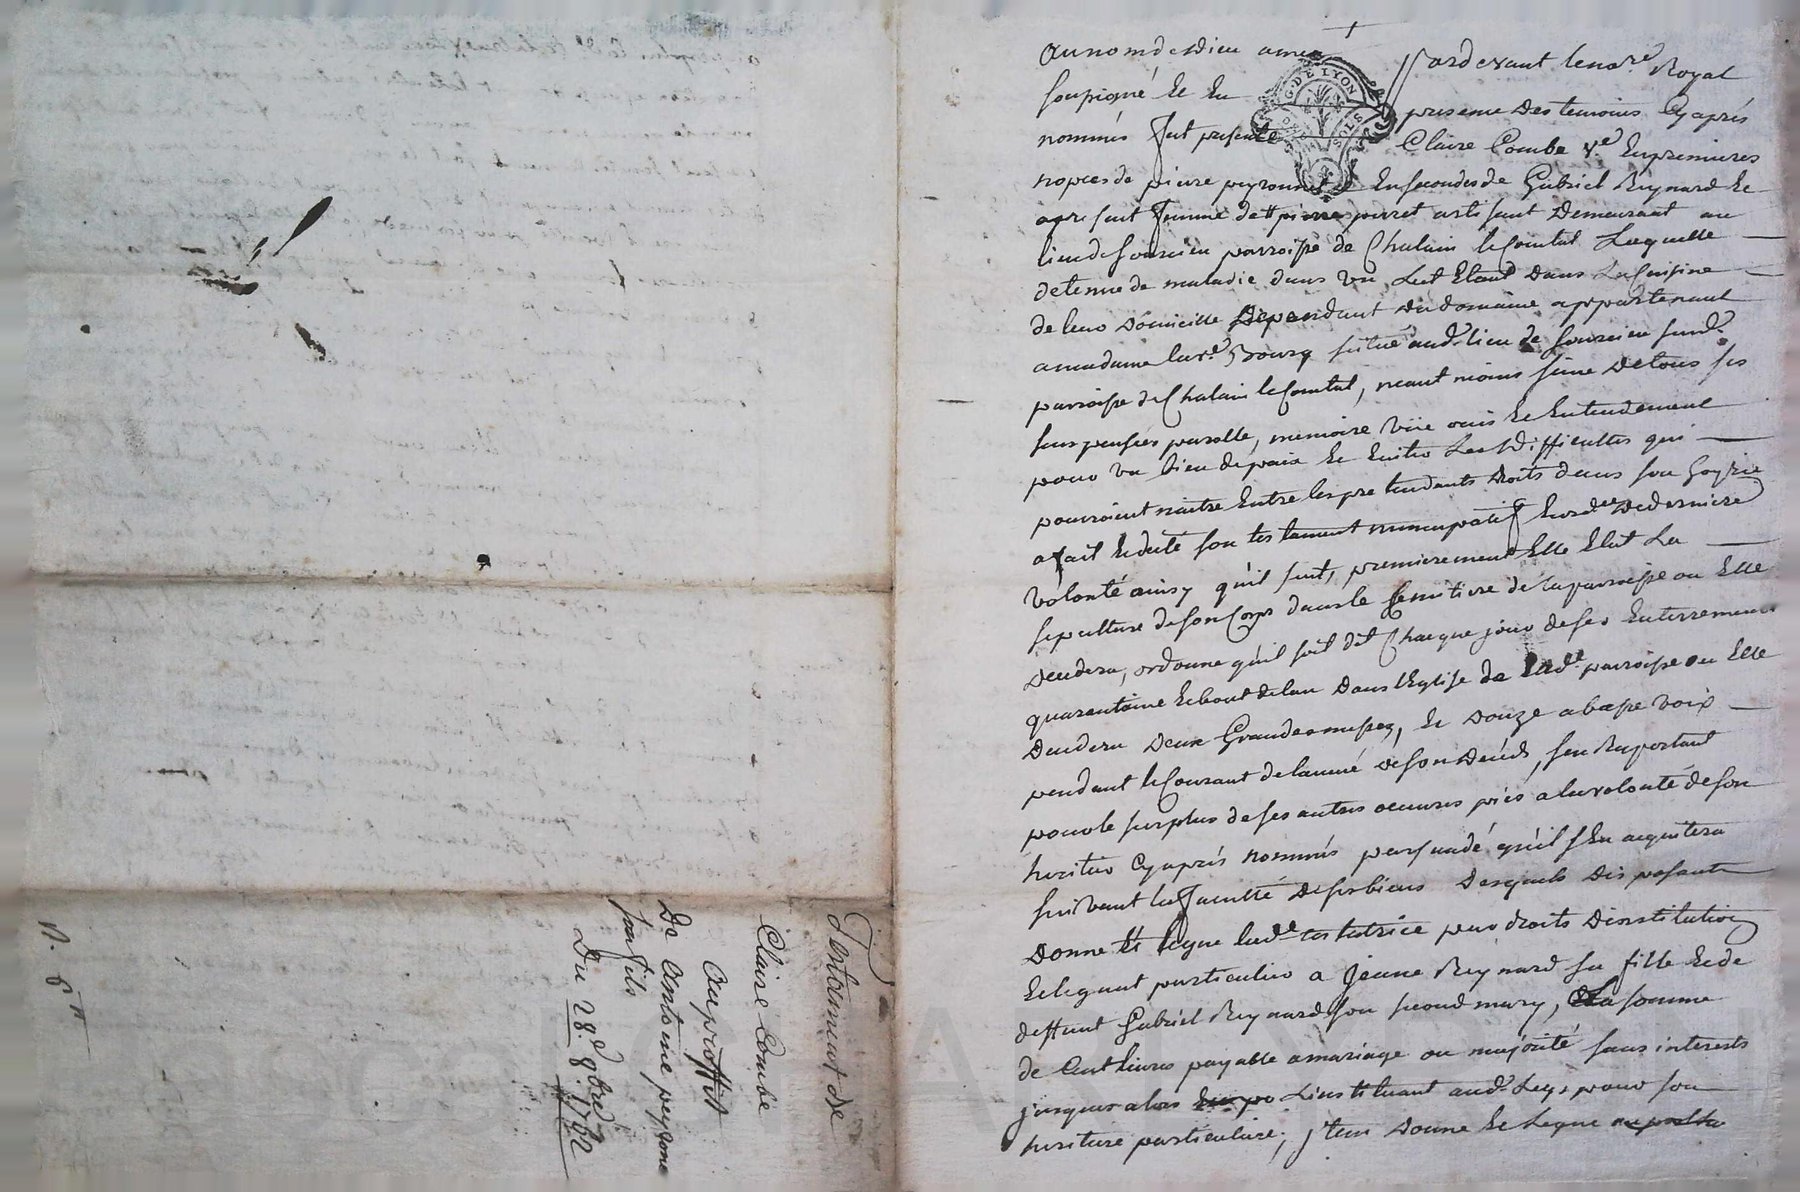 Testament de
Claire Combe
au proffit
De Antoine peyrone
son fils
Du 28.e 8bre 1762
au nom de dieu amen Pardevant le no.re Royal
soussigné et en presence des temoins Cyaprés
nommés fut presente Claire Combe v.e En premieres
nopces de pierre peyronnet Et En secondes de Gabriel Reynard Et
apresent femme de pierre perret artisant Demeurant au
lieu de parroisse de Chalain le Comtal Laquelle
detenue de maladie dans un Lict Etant Dans La Cuisine
de leur Domicille Dependant du domaine appartenant
a madame la v.e Bourg situé aud. lieu de susd.e
parroisse de Chalain le Comtal, neant moins saine de tous ses
sens pensées parolle, memoire vüe ouïe Et Entendement
pour un bien de paix Et Eviter Les Difficultes qui
pourroient naitre Entre les pretendants droits dans son hoyrie
a fait Et dicté son testament nuncupatif Et ord.re De derniere
volonté ainsy qu'il suit, premierement Elle Elut La
sepulture de son Corps dans le semitiere de la parroisse ou Elle
decedera, ordonne qu'il soit dit Chaque jour de ses Enterrement
quarantaine Et bout de lan Dans l'Eglise de parroisse ou Elle
Decedera Deux Grandes messes, Et Douze a basse voix
pendant le Courant de lanné de son Decéds, sen Raportant
pour le surplus de ses autres oeuvres pies a la volonté de son
heritier Cyaprés nommés persuadé qu'il s'En aquitera
suivant la faculté de ses biens Desquels Disposante
Donne Et legue lad.e testatrice pour droits D'institution
Et legat particulier a Jeanne Reynard sa fille Et de
deffunt Gabriel Reynard son second mary, La somme
de Cent livres payable a mariage ou majorité sans interests
jusques alors L'instituant aud. Legs pour son
heritiere particuliere; j'tem Donne Et Legue